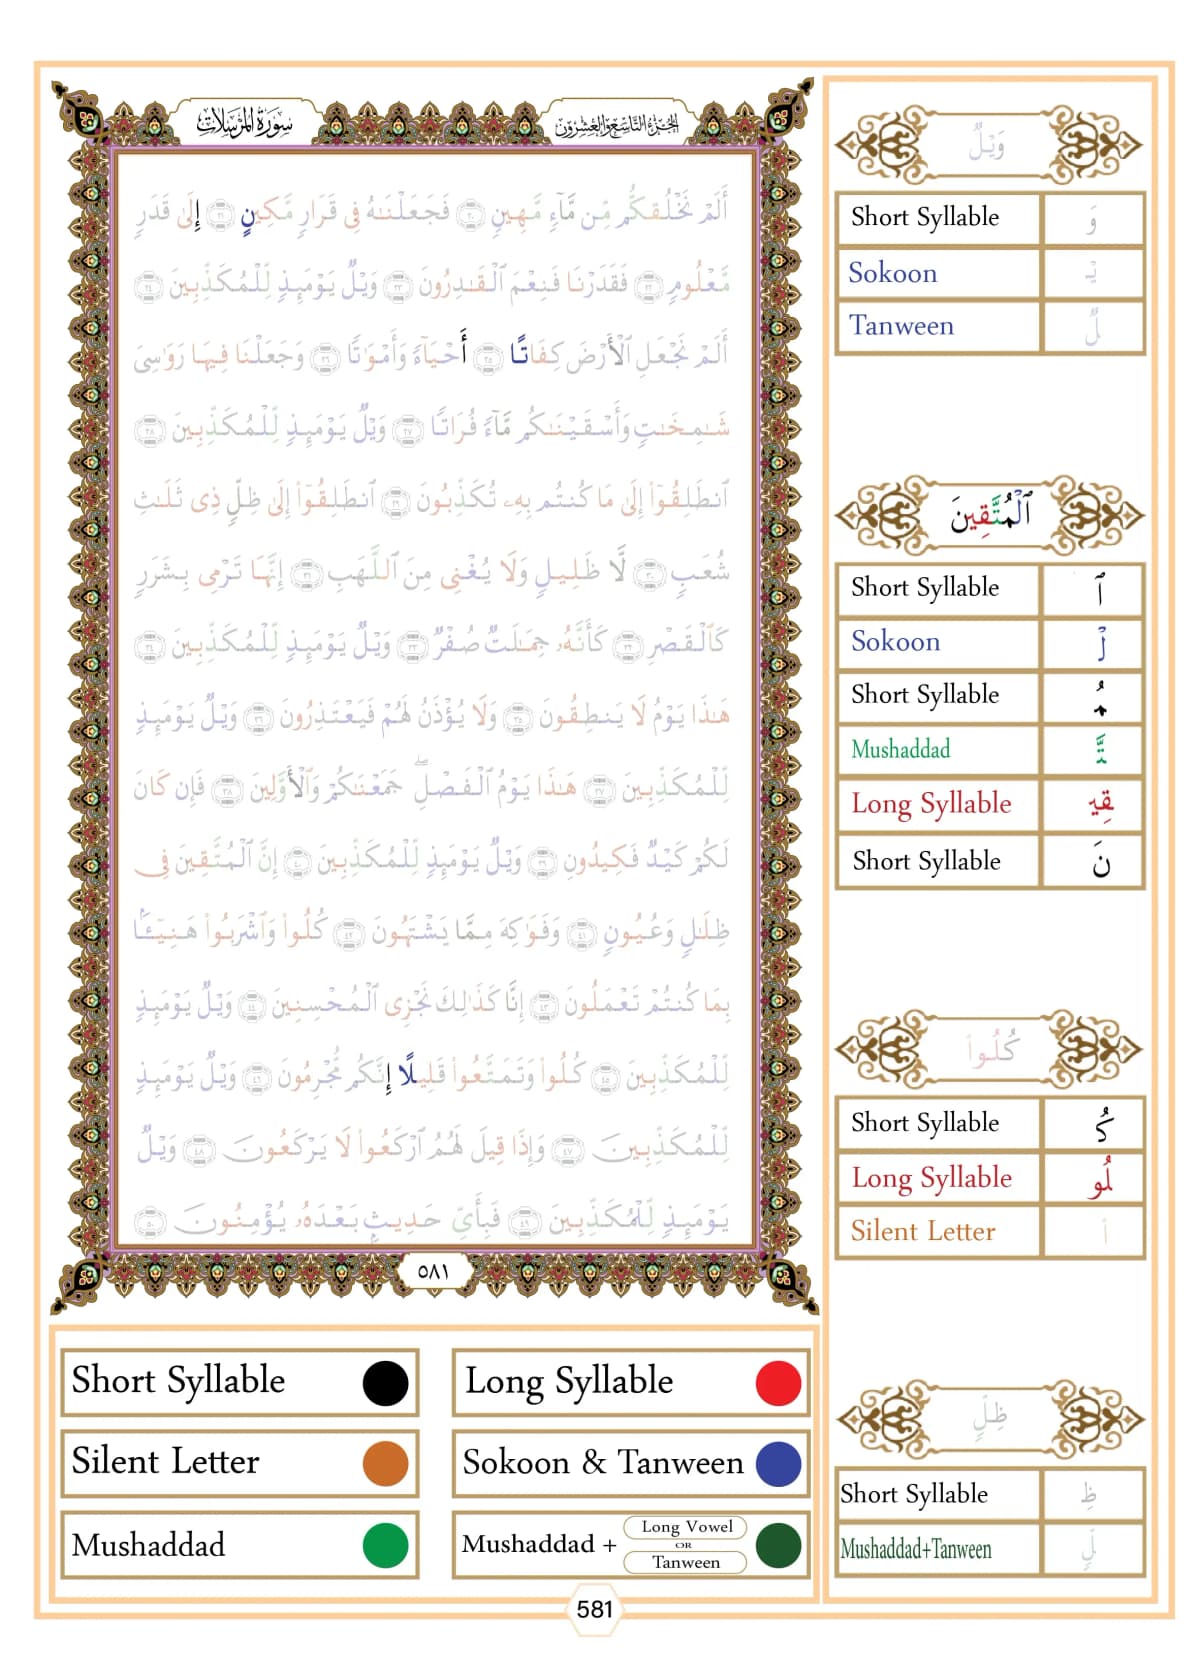 سورة المرسلات
الجزء التاسع والعشرون
أَلَمْ نَخْلُقكُّم مِّن مَّآءٍ مَّهِينٍ ٢٠ فَجَعَلْنَـٰهُ فِى قَرَارٍ مَّكِينٍ ٢١ إِلَىٰ قَدَرٍ
مَّعْلُومٍ ٢٢ فَقَدَرْنَا فَنِعْمَ ٱلْقَـٰدِرُونَ ٢٣ وَيْلٌ يَوْمَئِذٍ لِّلْمُكَذِّبِينَ ٢٤
أَلَمْ نَجْعَلِ ٱلْأَرْضَ كِفَاتًا ٢٥ أَحْيَآءً وَأَمْوَٰتًا ٢٦ وَجَعَلْنَا فِيهَا رَوَٰسِىَ
شَـٰمِخَـٰتٍ وَأَسْقَيْنَـٰكُم مَّآءً فُرَاتًا ٢٧ وَيْلٌ يَوْمَئِذٍ لِّلْمُكَذِّبِينَ ٢٨
ٱنطَلِقُوٓا۟ إِلَىٰ مَا كُنتُم بِهِۦ تُكَذِّبُونَ ٢٩ ٱنطَلِقُوٓا۟ إِلَىٰ ظِلٍّ ذِى ثَلَـٰثِ
شُعَبٍ ٣٠ لَّا ظَلِيلٍ وَلَا يُغْنِى مِنَ ٱللَّهَبِ ٣١ إِنَّهَا تَرْمِى بِشَرَرٍ
كَٱلْقَصْرِ ٣٢ كَأَنَّهُۥ جِمَـٰلَتٌ صُفْرٌ ٣٣ وَيْلٌ يَوْمَئِذٍ لِّلْمُكَذِّبِينَ ٣٤
هَـٰذَا يَوْمُ لَا يَنطِقُونَ ٣٥ وَلَا يُؤْذَنُ لَهُمْ فَيَعْتَذِرُونَ ٣٦ وَيْلٌ يَوْمَئِذٍ
لِّلْمُكَذِّبِينَ ٣٧ هَـٰذَا يَوْمُ ٱلْفَصْلِ ۖ جَمَعْنَـٰكُمْ وَٱلْأَوَّلِينَ ٣٨ فَإِن كَانَ
لَكُمْ كَيْدٌ فَكِيدُونِ ٣٩ وَيْلٌ يَوْمَئِذٍ لِّلْمُكَذِّبِينَ ٤٠ إِنَّ ٱلْمُتَّقِينَ فِى
ظِلَـٰلٍ وَعُيُونٍ ٤١ وَفَوَٰكِهَ مِمَّا يَشْتَهُونَ ٤٢ كُلُوا۟ وَٱشْرَبُوا۟ هَنِيٓـًٔۢا
بِمَا كُنتُمْ تَعْمَلُونَ ٤٣ إِنَّا كَذَٰلِكَ نَجْزِى ٱلْمُحْسِنِينَ ٤٤ وَيْلٌ يَوْمَئِذٍ
لِّلْمُكَذِّبِينَ ٤٥ كُلُوا۟ وَتَمَتَّعُوا۟ قَلِيلًا إِنَّكُم مُّجْرِمُونَ ٤٦ وَيْلٌ يَوْمَئِذٍ
لِّلْمُكَذِّبِينَ ٤٧ وَإِذَا قِيلَ لَهُمُ ٱرْكَعُوا۟ لَا يَرْكَعُونَ ٤٨ وَيْلٌ
يَوْمَئِذٍ لِّلْمُكَذِّبِينَ ٤٩ فَبِأَىِّ حَدِيثٍۭ بَعْدَهُۥ يُؤْمِنُونَ ٥٠
٥٨١
وَيْلٌ
Short Syllable وَ
Sokoon يْـ
Tanween لٌ
ٱلْمُتَّقِينَ
Short Syllable ٱ
Sokoon لْ
Short Syllable مُـ
Mushaddad تَّـ
Long Syllable قِيـ
Short Syllable نَ
كُلُوا۟
Short Syllable كُـ
Long Syllable لُو
Silent Letter ا۟
ظِلٍّ
Short Syllable ظِـ
Mushaddad+Tanween لٍّ
Short Syllable
Long Syllable
Silent Letter
Sokoon & Tanween
Mushaddad
Mushaddad + Long Vowel OR Tanween
581